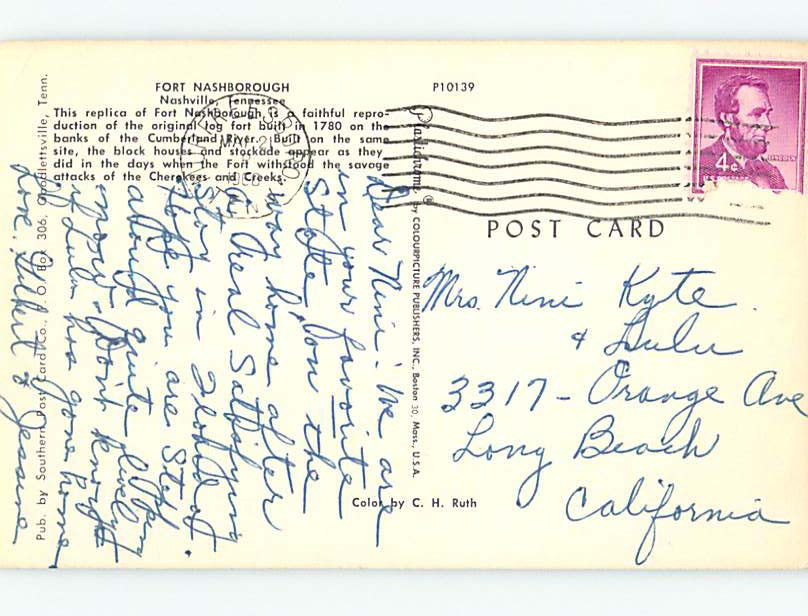 FORT NASHBOROUGH
Nashville, Tennessee
This replica of Fort Nashborough is a faithful repro-
duction of the original log fort built in 1780 on the
banks of the Cumberland River. Built on the same
site, the block houses and stockade appear as they
did in the days when the Fort withstood the savage
attacks of the Cherokees and Creeks.
P10139
4¢
LINCOLN
POST CARD
Pub. by Southern Post Card Co., P. O. Box 306, Goodlettsville, Tenn.
Plastichrome ® by COLOURPICTURE PUBLISHERS, INC., Boston 30, Mass., U.S.A.
Color by C. H. Ruth
Dear Nini: We are
in your favorite
State, on the
way home after
a real satisfying
stay in Florida.
Hope you are still
about quite
most. Don't know
if Lulu has gone home
Love, Gilbert & Jessine
Mrs. Nini Kyte
& Lulu
3317 - Orange Ave
Long Beach
California